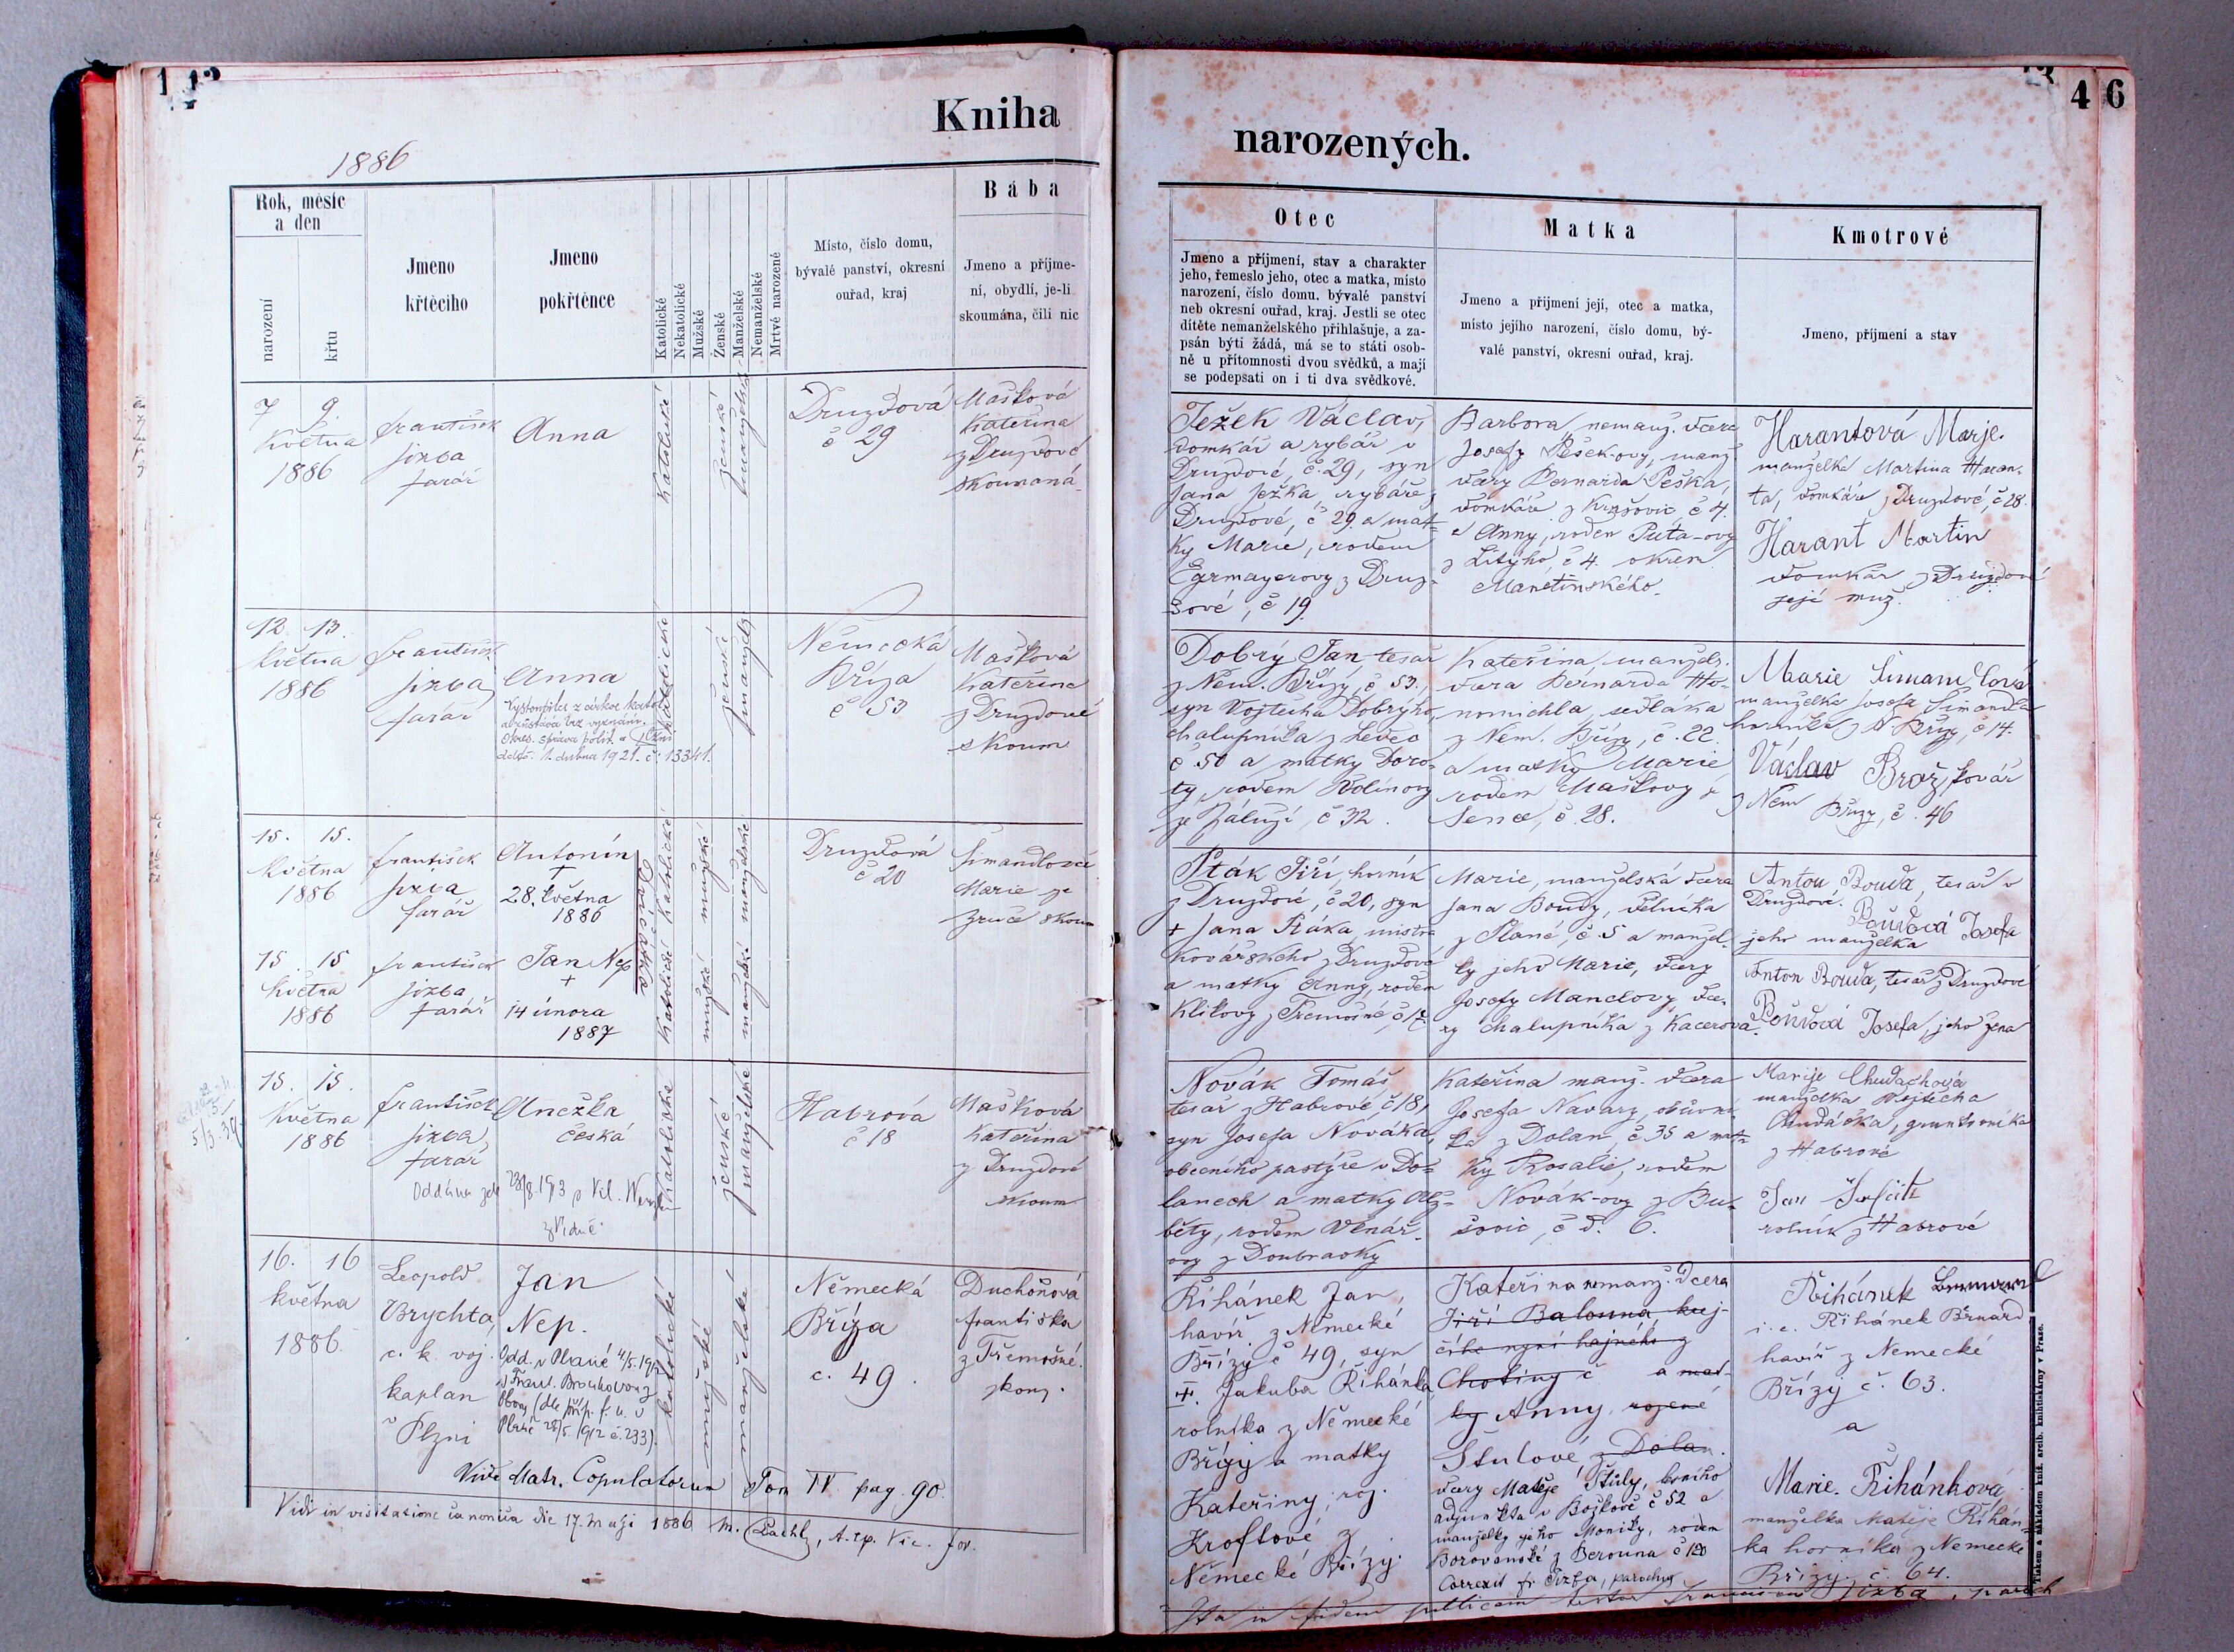 Kniha
narozených.
46
1886
Rok, měsíc
a den
narození
křtu
Jmeno
křtěcího
Jmeno
pokřtěnce
Katolické
Nekatolické
Mužské
Ženské
Manželské
Nemanželské
Mrtvé narozené
Místo, číslo domu,
bývalé panství, okresní
ouřad, kraj
Bába
Jmeno a příjme-
ní, obydlí, je-li
skoumána, čili nic
Otec
Jmeno a příjmení, stav a charakter
jeho, řemeslo jeho, otec a matka, místo
narození, číslo domu. bývalé panství
neb okresní ouřad, kraj. Jestli se otec
dítěte nemanželského přihlašuje, a za-
psán býti žádá, má se to státi osob-
ně u přítomnosti dvou svědků, a mají
se podepsati on i ti dva svědkové.
Matka
Jmeno a přijmení její, otec a matka,
místo jejího narození, číslo domu, bý-
valé panství, okresní ouřad, kraj.
Kmotrové
Jmeno, příjmení a stav
7 9.
Května
1886
František
Jizba
farář
Anna
Katolické
ženské
manželské
Druzdová
č 29
Mašková
Kateřina
z Druzdové
skoumaná
Ježek Václav,
domkář a rybář v
Druzdové, č. 29, syn
Jana Ježka, rybáře z
Druzdové, č 29 a mat-
ky Marie, rodem
Egrmayerovy z Druz-
dové, č 19.
Barbora, nemanž. dcera
Josefy Pešek-ovy, manž
dcery Bernarda Peška,
domkáře z Krašovic č 4.
a Anny, roden Půta-ovy
z Litýho, č 4. okres.
Manetínského.
Harantová Marje.
manželka Martina Haran-
ta, domkáře z Druzdové, č 28.
Harant Martin
domkář z Druzdové
její muž.
12. 13.
Května
1886
František
Jizba
farář
Anna
Vystoupila z církve katol.
a zůstává bez vyznání.
Okres. správa polit. v Plzni
ddto. 1. dubna 1921. č: 13341.
Katolické
ženské
manžels
Německá
Bříza
č 53
Mašková
Kateřina
z Druzdové
skoum
Dobrý Jan, tesař
z Něm. Břízy, č 53.,
syn Vojtěcha Dobrýho,
chalupníka z Ledec
č 50 a matky Doro-
ty, rodem Kolínovy
ze Záluží, č 32.
Kateřina, manžels.
dcera Bernarda Ho-
nomichla, sedláka
z Něm. Břízy, č. 22
a matky Marie
rodem Maškovy ze
Sence, č. 28.
Marie Šimandlová
manželka Josefa Šimandla
horníka z N. Břízy, č 14.
Václav Brož, kovář
z Něm Břízy, č. 46
15. 15.
Května
1886
František
Jizba
farář
Antonín
+
28. května
1886
dvojčata
Katolické
mužské
manželské
Druzdová
č 20
Šimandlová
Marie ze
Zruče skoum
15. 15
Května
1886
František
Jizba
farář
Jan Nep
+
14 února
1887
Katolické
mužské
manželské
Pták Jiří, horník
z Druzdové, č 20, syn
+ Jana Ptáka, mistra
kovářského z Druzdové
a matky Anny, rodem
Klikovy z Třemošné, č 17.
Marie, manželská dcera
Jana Boudy, dělníka
z Plané, č. 5 a manžel-
ky jeho Marie, dcery
Josefy Manclovy, dce-
ry chalupníka z Kacerova.
Anton Bouda, tesař v
Druzdové.
Boudová Josefa
jeho manželka
Anton Bouda, tesař z Druzdové
Boudová Josefa, jeho žena
15. 15.
Května
1886
František
Jizba
farář
Anežka
česká
Katolické
ženské
manželské
Habrová
č 18
Mašková
Kateřina
z Druzdové
skoum
Novák Tomáš
tesař z Habrové, č 18,
syn Josefa Nováka,
obecního pastýře v Do-
lanech a matky Alž-
běty, rodem Venář-
ovy z Doubravky
Kateřina manž. dcera
Josefa Navary, obuvní-
ka z Dolan, č 35 a mat-
ky Rosalie, rodem
Novák-ovy z Bu-
šovic, č d. 6.
Marije Chudáčková
manželka Vojtěcha
Chudáčka, gruntovníka
z Habrové
Jan
rolník z Habrové
16. 16
května
1886.
Leopold
Brychta,
c. k. voj.
kaplan
v Plzni
Jan
Nep.
Odd. v Plané 4/5. 1912
(dle příp. f. ú. v
Plané 28/5. 1912 č. 233).
katolické
mužské
manželské
Německá
Bříza
č. 49.
Duchoňová
Františka
z Třemošné.
zkouš.
Řihánek Jan,
havíř z Německé
Břízy č 49, syn
+. Jakuba Řihánka,
rolníka z Německé
Břízy a matky
Kateřiny, roz.
Kroftové z
Německé Břízy.
Kateřina nemanž. dcera
Jiří Balouna, krej-
čího nyní hajného z
Chotiny č a mat-
ky Anny, rozené
Štulové z Dolan.
dcery Matěje Štuly, horního
adjunkta v Božkově č 52 a
manželky jeho Moniky, rodem
Borovanské z Berouna č 120
Correxit fr Jizba, parochus
Řihánek
i. e. Řihánek Bernard
havíř z Německé
Břízy č. 63.
a
Marie. Řihánková
manželka Matěje Řihán-
ka horníka z Německé
Břízy. č. 64.
Vide Matr. Copulatorum Tom IV pag. 90.
Vidi in visitatione canonica die 17. Maji 1886
Ita in fidem publicam testor Franciscus Jizba, paroch
Tiskem a nákladem kníž. arcib. knihtiskárny v Praze.